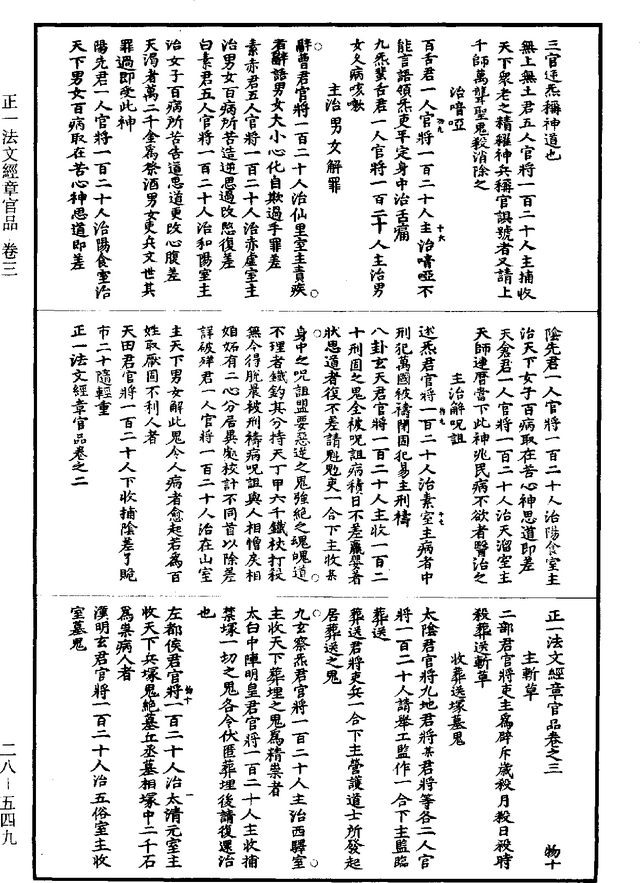 三官逆炁稱神道也
無上無土君五人官將一百二十人主捕收
天下衆老之精襬神兵稱官設號者又請上
千師萬聾聖鬼殺消除之
治喑啞
百舌君一人官將一百二十人主治喑啞不
能言語領炁更平定身中治舌痛
九炁葉舌君一人官將一百二十人主治男
女久病咳嗽
主治男女解罪
辭曹君官將一百二十人治仙里室主責疾
者辭語男女大小心化自欺過手罪差
素赤君五人官將一百二十人治赤虛室主
治男女百病所苦造逆思過改愆復差
白素君五人官將一百二十人治和陽室主
治女子百病所苦告道思道更改心腹差
天渴者萬二千金爲祭酒男女吏兵文世其
罪過即受此神
陽先君一人官將一百二十人治陽食室治
天下男女百病取在苦心神思道即差
陰先君一人官將一百二十人治陽食室主
治天下女子百病取在苦心神思道即差
天倉君一人官將一百二十人治天溜室主
天師連曆當下此神兆民病不欲者醫治之
主治解呪詛
述炁君官將一百二十人治素室主病者中
刑犯萬國被禱閉固犯易主刑禱
八卦玄天君官將一百二十人主收一百二
十刑固之鬼全被呪詛病積日不差羸嬰着
狀思過者復不差請魁魁吏一合下主收某
身中之呪詛盟要惡逆之鬼強絕之魂魄道
不理者鐵鈎其分持天丁甲六千鐵杖打殺
無令得脫晨被刑禱病呪詛與人相憎矣相
姤妬有二心分居異處校計不同首以除差
詳破殃君一人官將一百二十人治在山室
主天下男女解此鬼令人病者愈起若爲百
姓取厭固不利人者
天田君官將一百二十人下收捕陰差了賧
市二十隨輕重
正一法文經章官品卷之二
正一法文經章官品卷之三
物十
主斬草
二部君官將吏主爲辟斥歲殺月殺日殺時
殺葬送斬草
收葬送塚墓鬼
太陰君官將九地君將某君將等各二人官
將一百二十人請舉工監作一合下主監臨
葬送
葬送君將吏兵一合下主營護道士所發起
居葬送之鬼
九玄察炁君官將一百二十人主治西驛室
主收天下葬埋之鬼爲精祟者
太白中陣明皇君官將一百二十人主收捕
禁塚一切之鬼各令伏匿葬埋後請復還治
也
左都侯君官將一百二十人治太清元室主
收天下兵塚鬼絕墓丘丞墓相塚中二千石
爲祟病人者
漢明玄君官將一百二十人治五俗室主收
室墓鬼
正一法文經章官品 卷三
二八－五四九